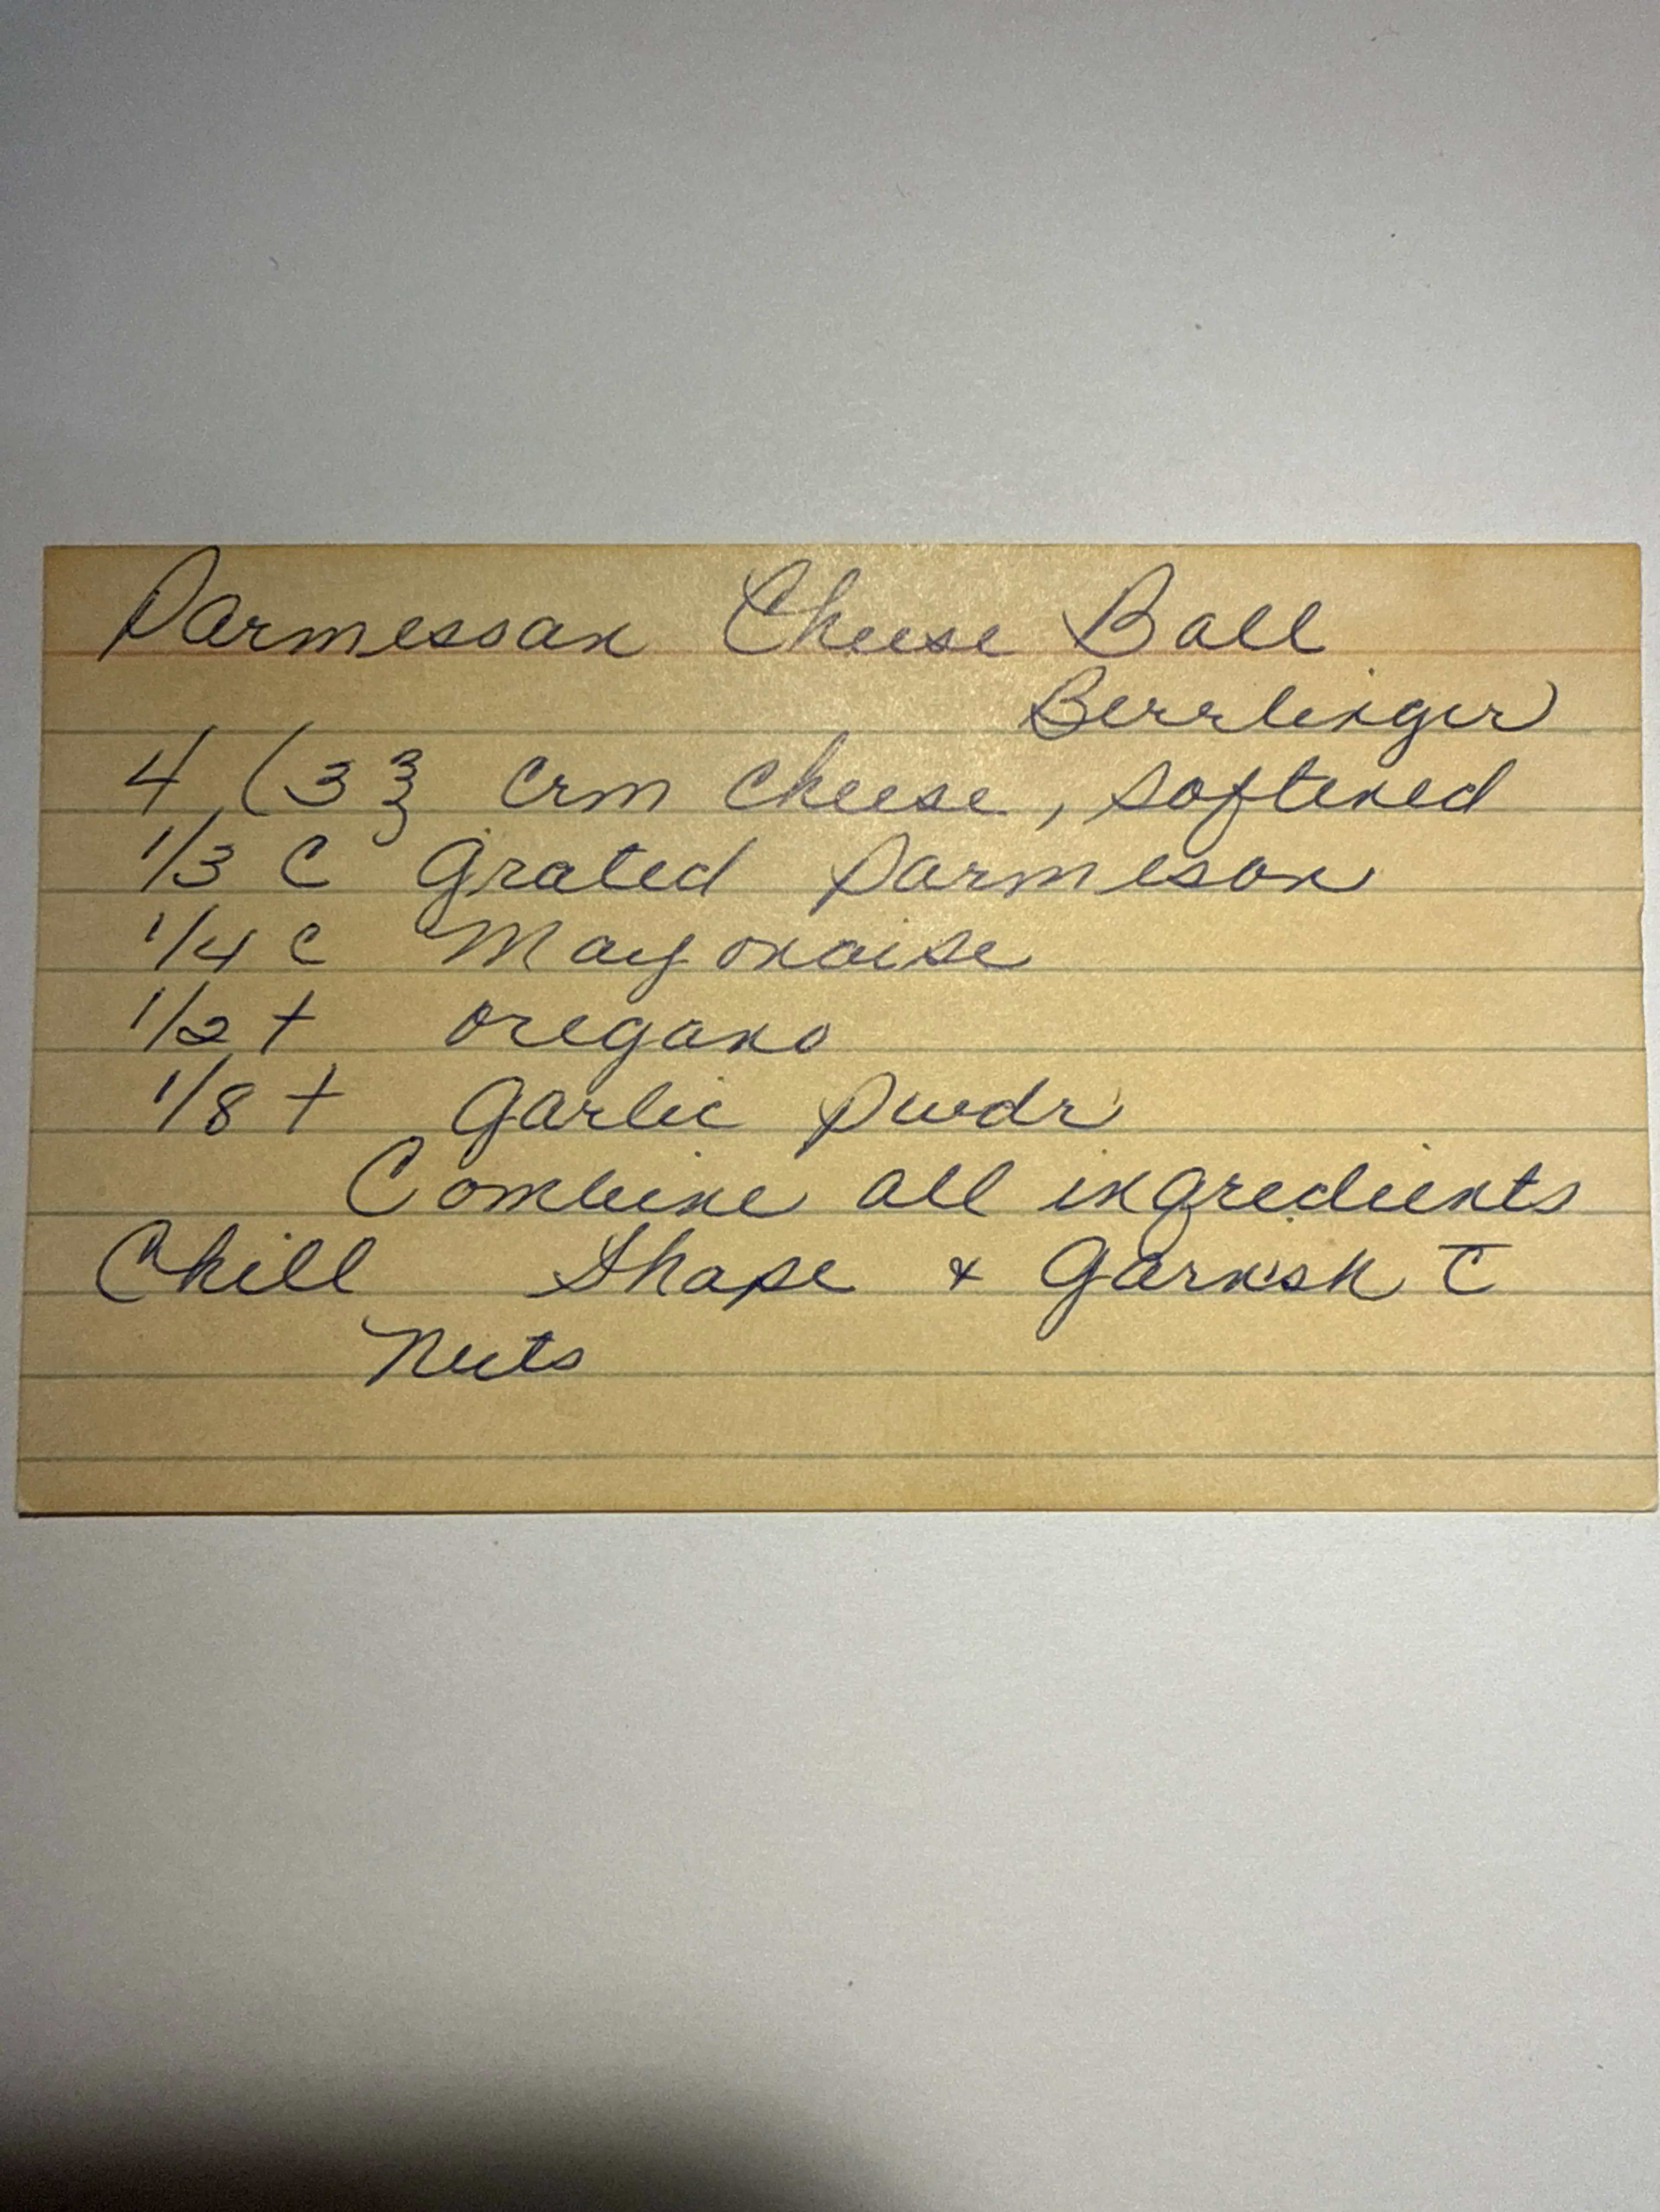 Parmessan Cheese Ball
Berrlinger
4 (3 ℥ crm cheese, softened
1/3 C Grated Parmesan
1/4 C Mayonaise
1/2 t oregano
1/8 t Garlic Pwdr
Combine all ingredients
Chill Shape & Garnish c̄
Nuts